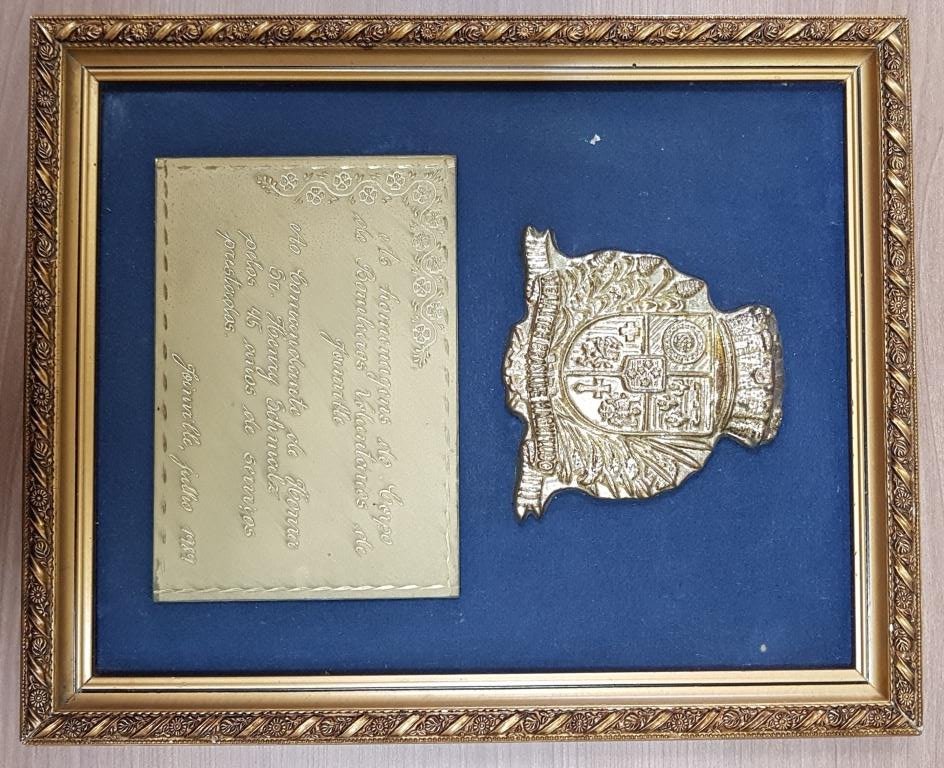 MEA AUTEM BRASILIAE MAGNITUDO
As homenagens do Corpo
de Bombeiros Voluntários de
Joinville
Ao Comandante de Honra
Sr. Henry Schmalz
pelos 45 anos de serviços
prestados.
Joinville, julho 1989